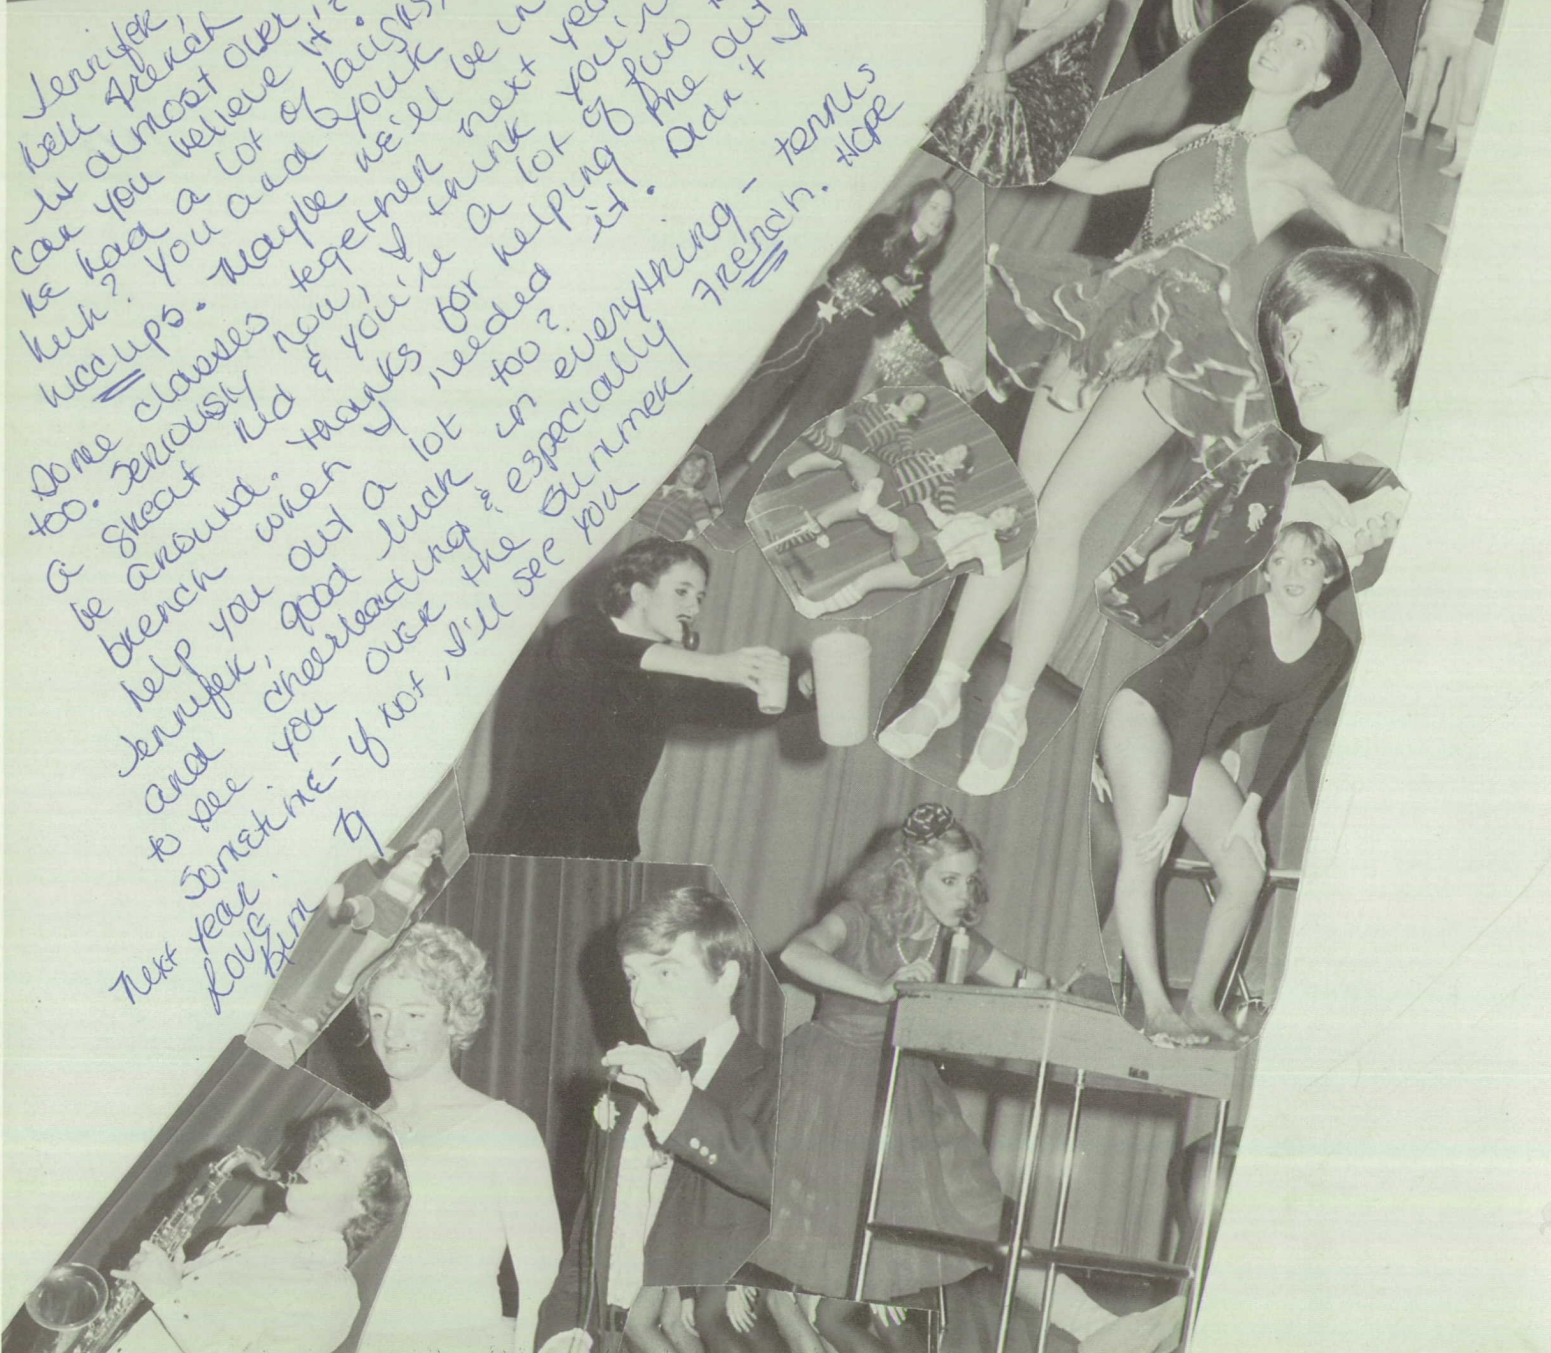 Jennifer,
Well French
is almost over,
Can you believe it?
We had a lot of laughs,
huh? You and your
hiccups. Maybe we'll be in
some classes together next yea
too. Seriously now, I think you're
a great kid & you're a lot of fun
be around. Thanks for helping me out
french when I needed it. Didn't I
help you out a lot too?
Jennifer, good luck in everything - tennis
and cheerleading & especially French. Hope
to see you over the summer
sometime - if not, I'll see you
next year.
Love
Kim